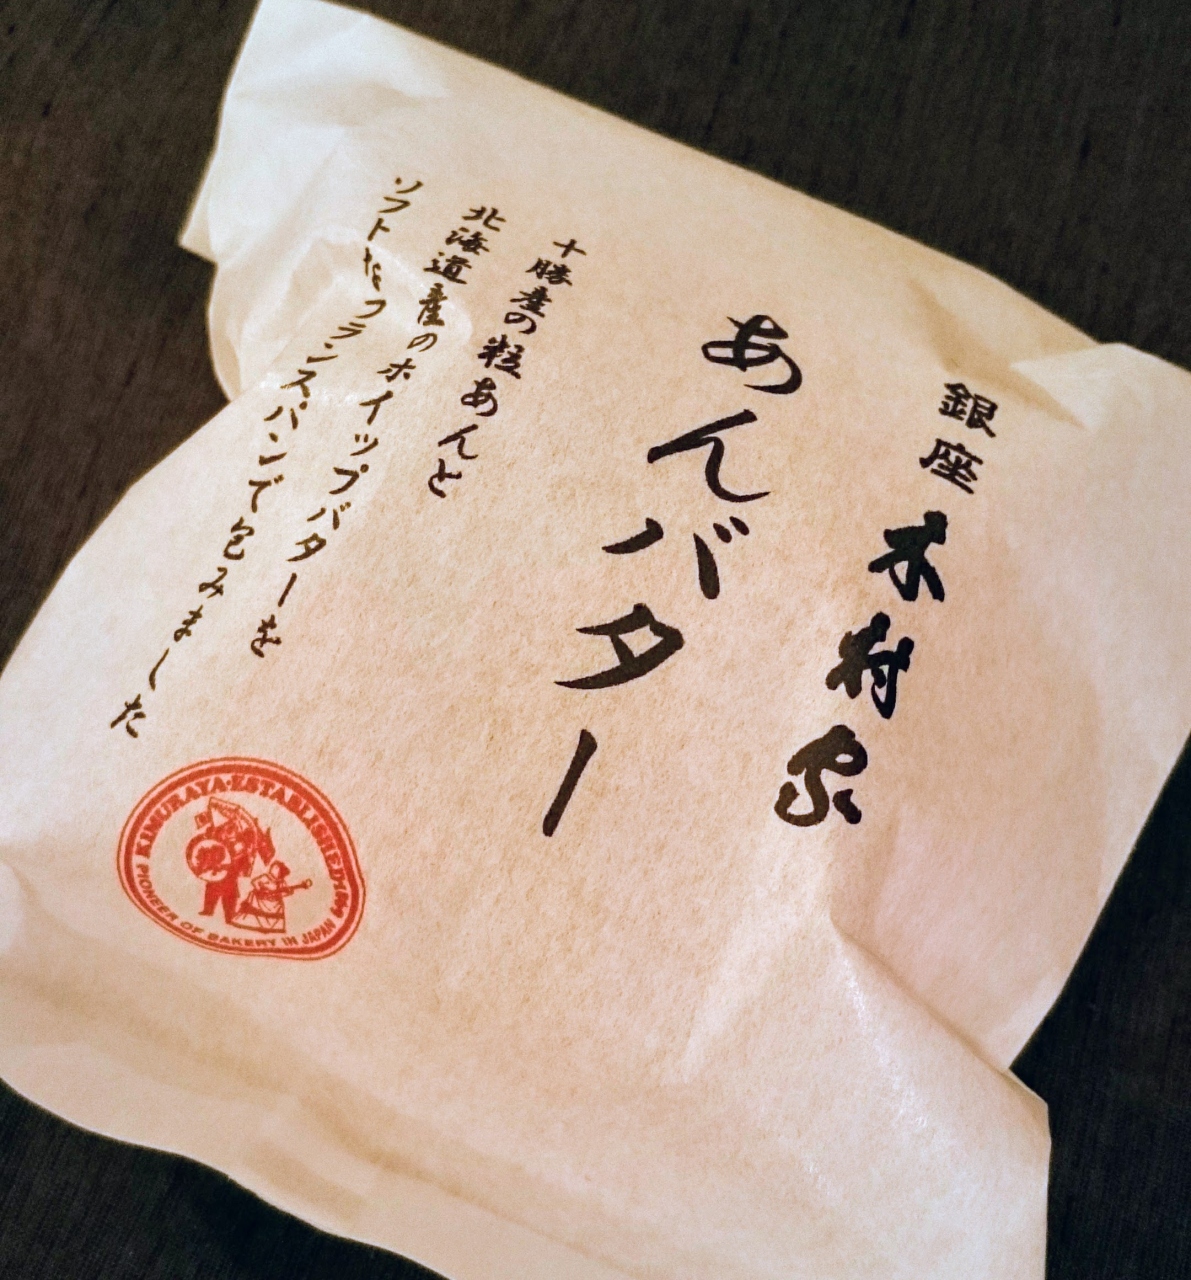 銀座 木村家
あんバター
十勝産の粒あんと
北海道産のホイップバターを
ソフトなフランスパンで包みました
KIMURAYA・ESTABLISHED 1869
PIONEER OF BAKERY IN JAPAN